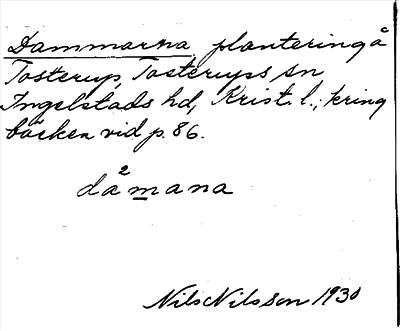 Dammarna, plantering å
Tosterup, Tosterups sn,
Ingelstads hd, Krist. l.; kring
bäcken vid p. 86.
då²mana
Nils Nilsson 1930